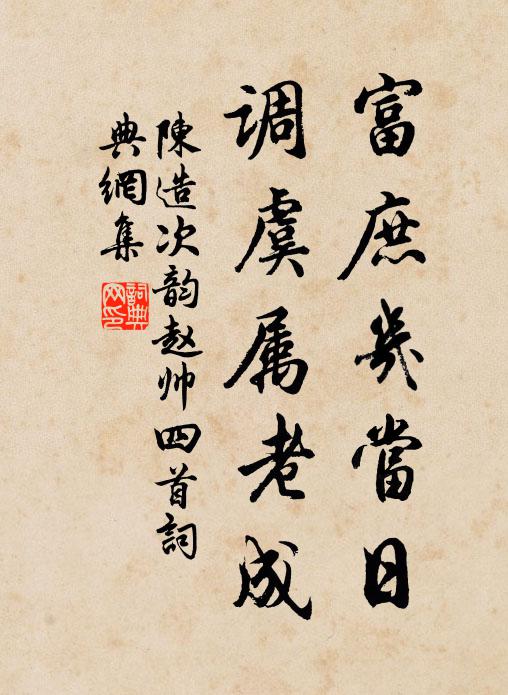 富庶幾當日
調虞属老成
陳造次韵赵帅四首詞
典網集
詞典網印